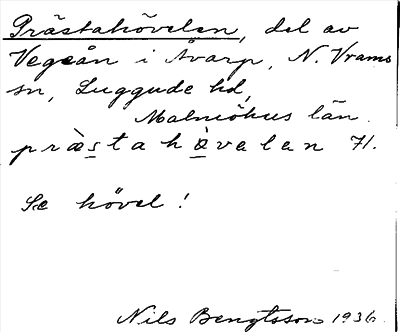 Prästahövelen, del av
Vegeån i Åvarp, N. Vrams
sn, Luggude hd,
Malmöhus län.
präs̲ta hö̲velen 71.
Se hövel!
Nils Bengtsson 1936.